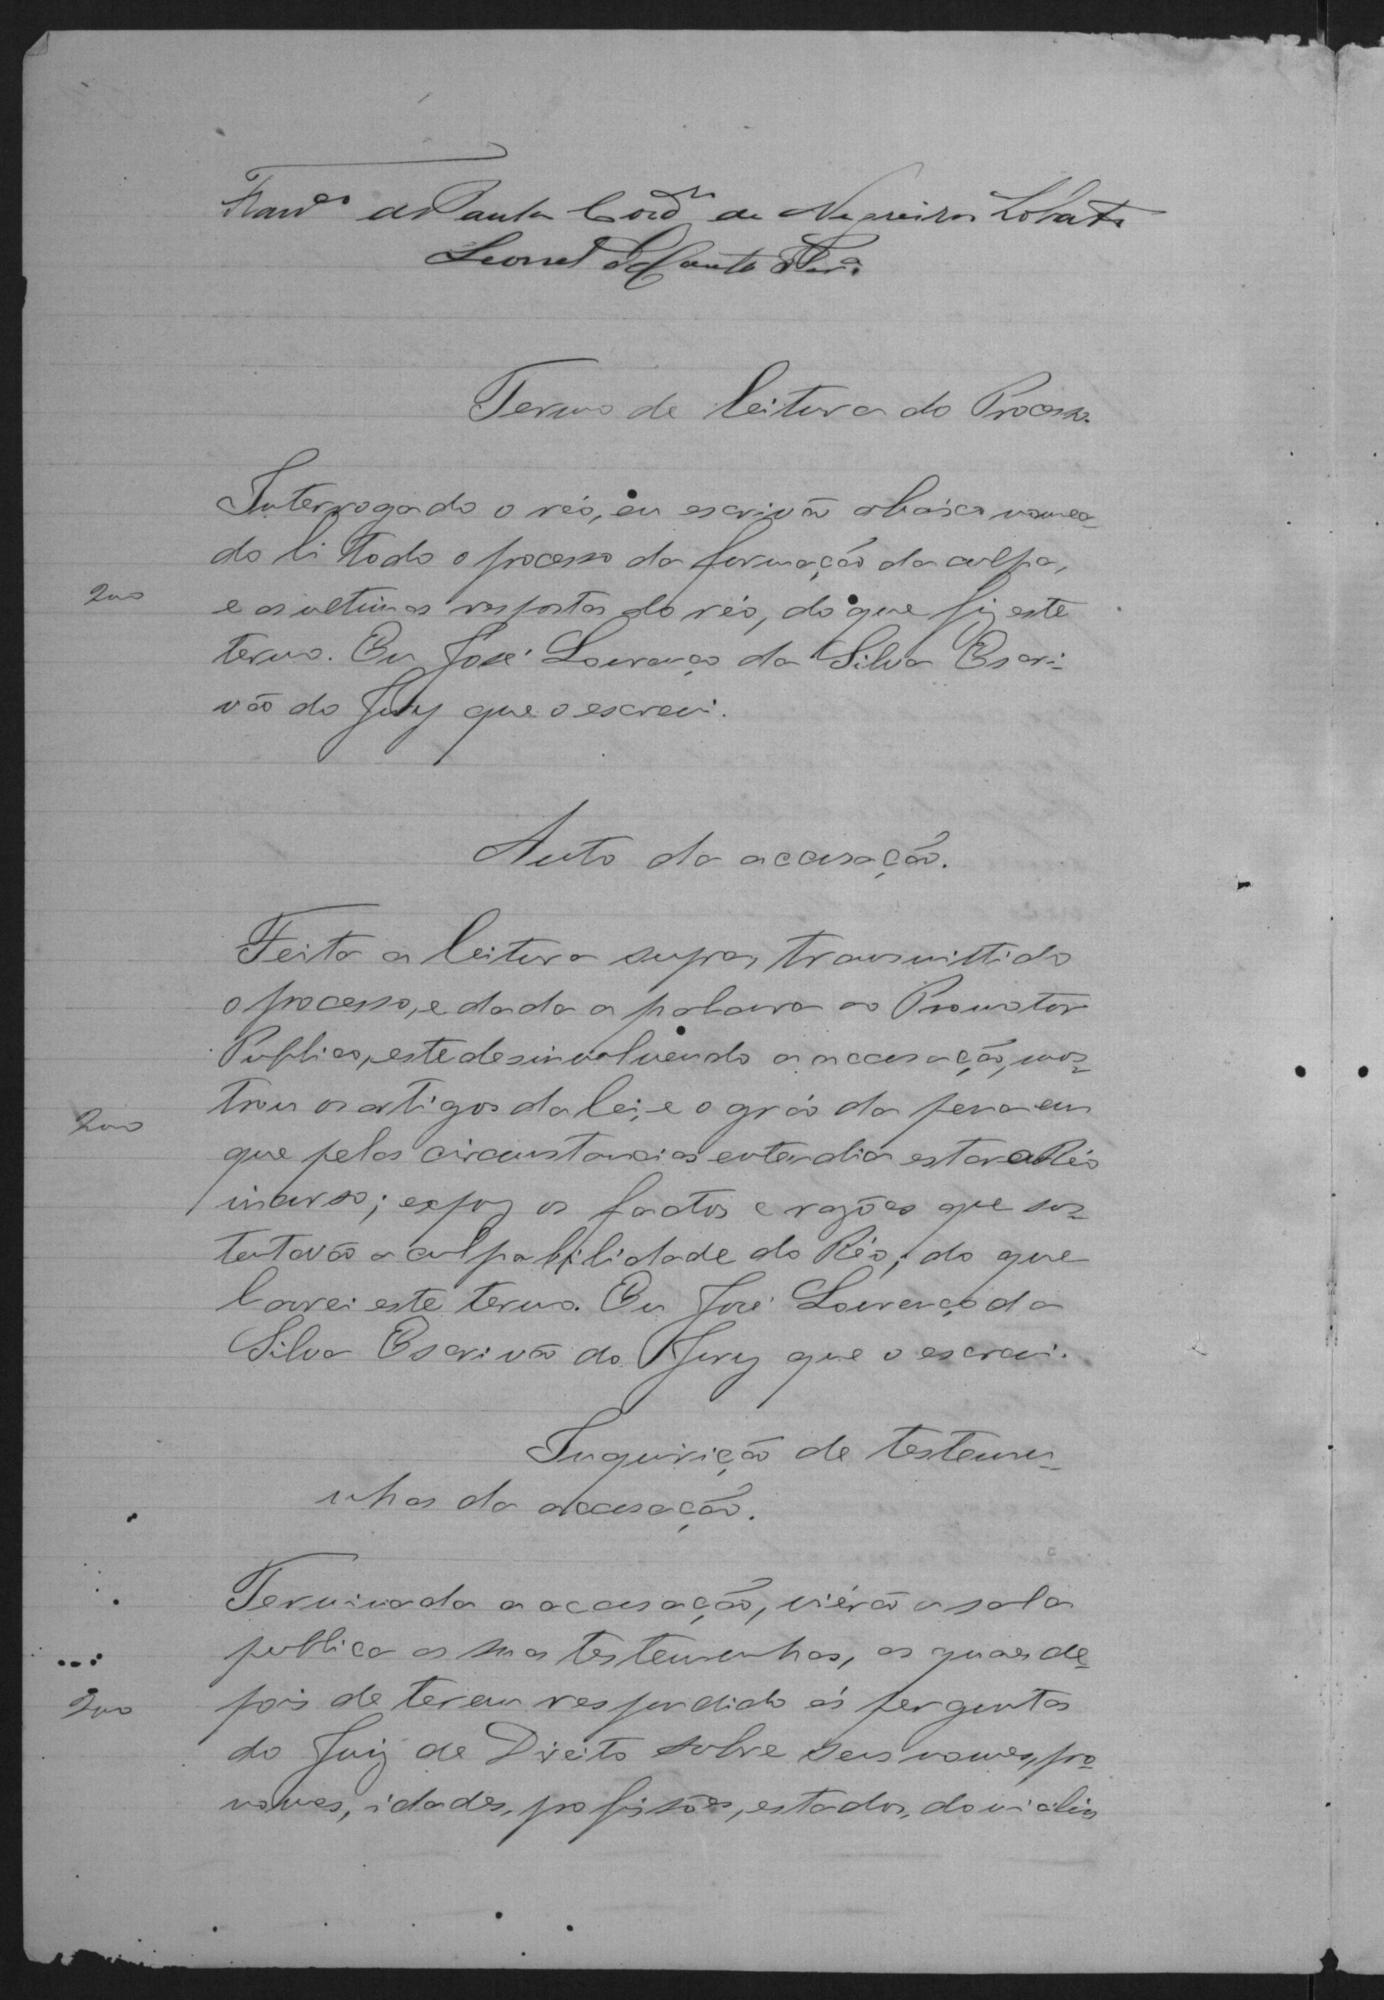 Fran.co de Paula Cord.ro de Negreiros Lobato
Leonel
Termo de leitura do Processo.
Interrogado o réo, eu escrivão abaixo nomea-
do li todo o processo da formação da culpa,
200
e as ultimas respostas do réo, do que fiz este
termo. Eu José Lourenço da Silva Escri-
vão do Jury que o escrevi.
Auto da accusação.
Feita a leitura supra, transmittido
o processo, e dada a palavra ao Promotor
Publico, este desinvolvendo a accusação, mos-
trou os artigos da lei, e o gráo da pena em
200
que pelas circunstancias entendia estar o Réo
incurso; expoz os factos e razões que sus-
tentavão a culpabilidade do Réo; do que
lavrei este termo. Eu José Lourenço da
Silva Escrivão do Jury que o escrevi.
Inquirição de testemu-
nhas da accusação.
Terminada a accusação, viérão a sala
publica as suas testemunhas, as quaes de-
200
pois de terem respondido ás perguntas
do Juiz de Direito sobre seus nomes, pro-
nomes, idades, profissões, estados, domicilios